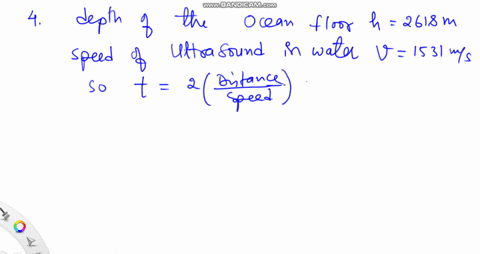 www.BANDICAM.com
4. depth of the Ocean floor h = 2618 m
speed of ultrasound in water V = 1531 m/s
so t = 2 (Distance/Speed)